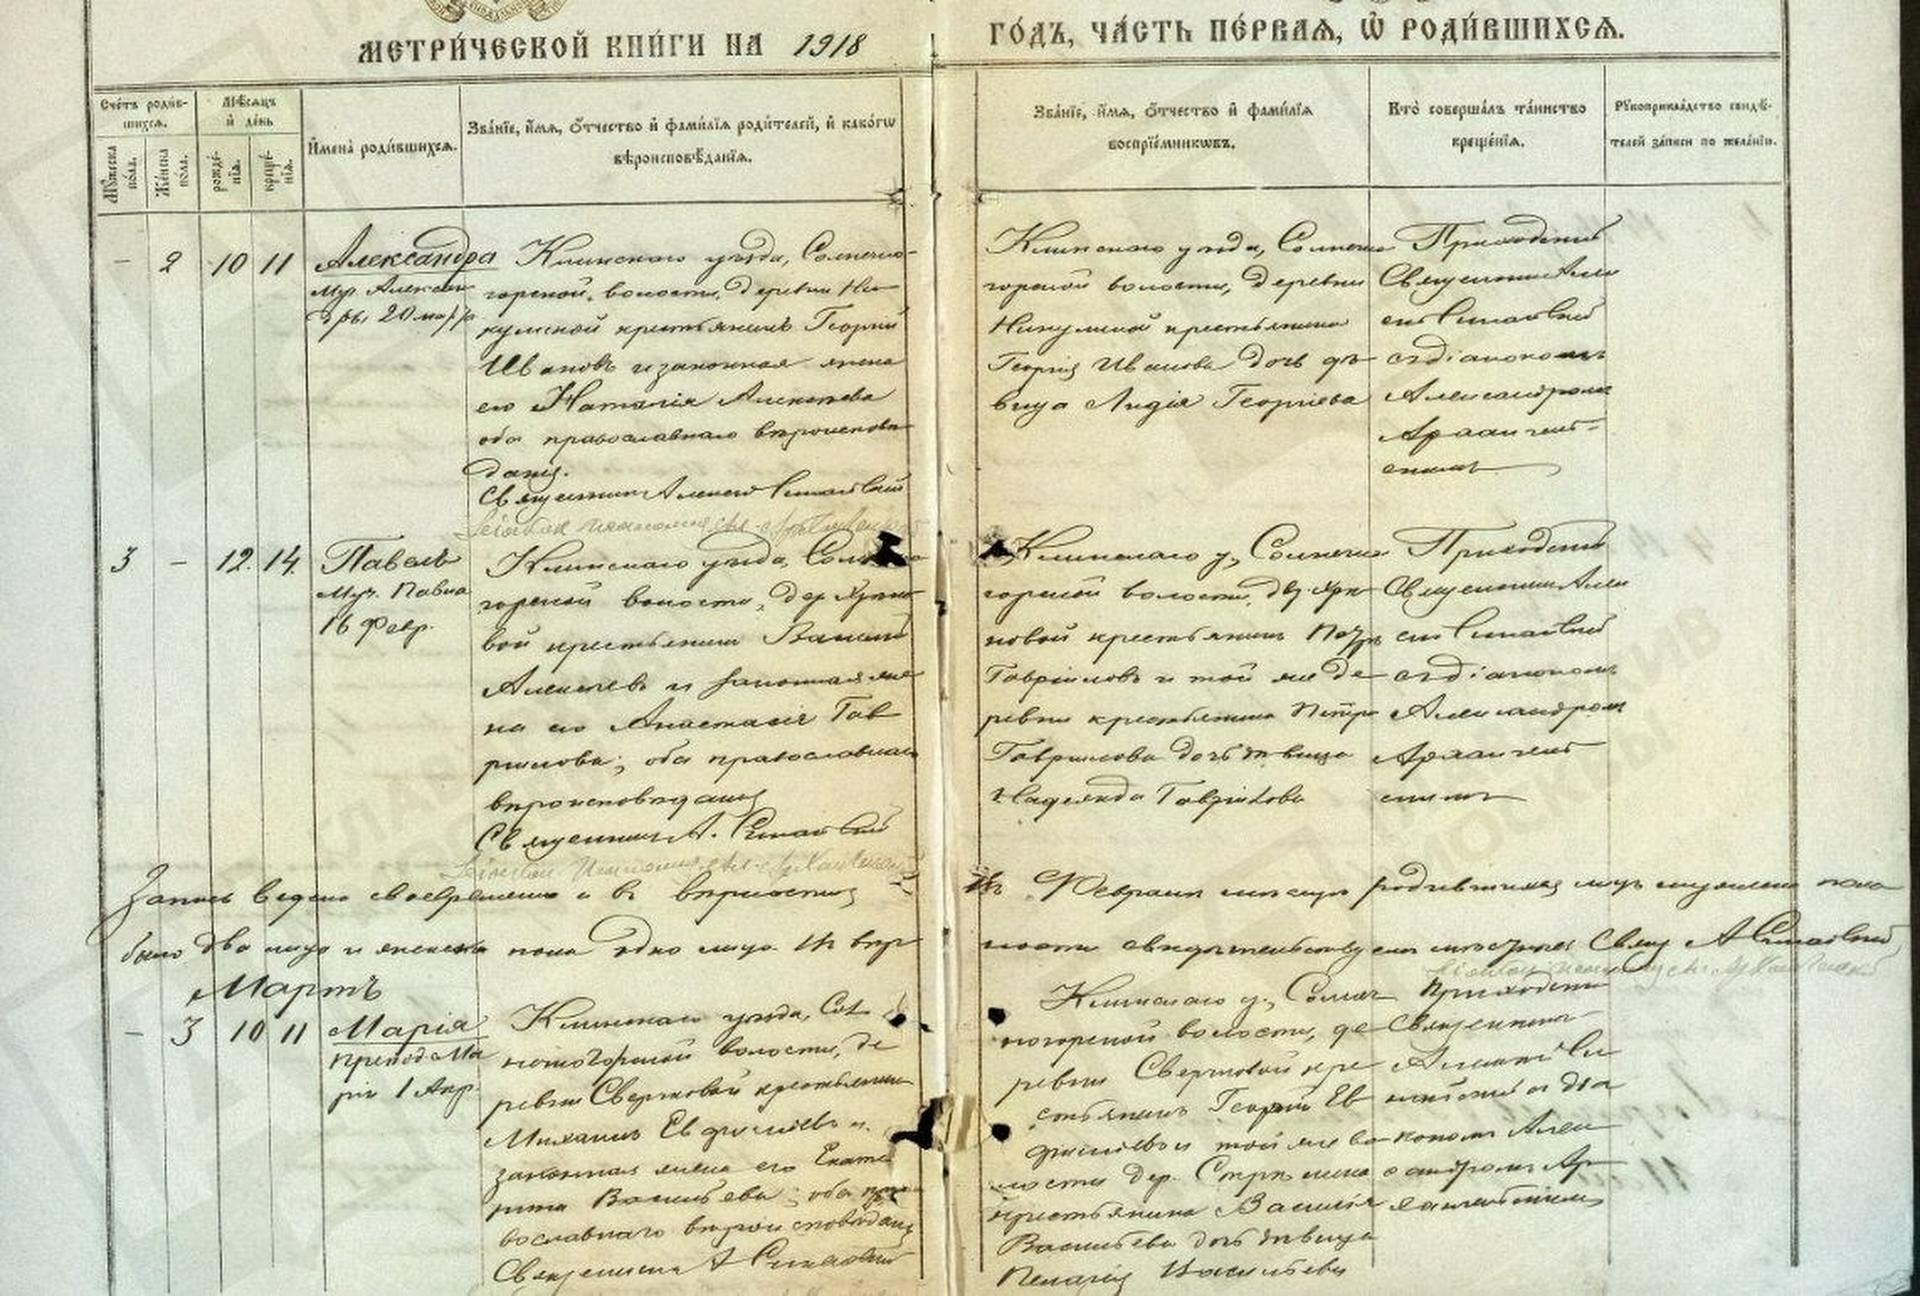 МЕТРИ́ЧЕСКОЙ КНИ́ГИ НА 1918
ГО́ДЪ, ЧА́СТЬ ПЕ́РВАѦ, Ѽ РОДИ́ВШИХСѦ.
Сче́тъ роди́в-
шихсѧ.
Мѣ́сѧцъ
и҆ де́нь
Мꙋ́жеска по́ла.
Же́нска по́ла.
рожде́-
нїѧ.
креще́-
нїѧ.
И҆мена̀ роди́вшихсѧ.
Зва́нїе, и҆́мѧ, ѻ҆́тчество и҆ фами́лїѧ роди́телей, и҆ како́гѡ
вѣроисповѣ́данїѧ.
Зва́нїе, и҆́мѧ, ѻ҆́тчество и҆ фами́лїѧ
воспрїе́мникѡвъ.
Кто̀ соверша́лъ та́инство
креще́нїѧ.
Рꙋкоприкла́дство свидѣ́-
телей за́писи по жела́нїю.
– 2 10 11
Александра
Муч. Алексан
дры 20 марта
Клинскаго уѣзда, Солнечно-
горской волости, деревни Ни-
кулиной крестьянинъ Георгій
Ивановъ и законная жена
его Наталія Алексѣева
оба православнаго вѣроисповѣ
данія.
Священникъ Алексій Синайскій
Клинскаго уѣзда, Солнечно
горской волости, деревни
Никулиной крестьянина
Георгія Иванова дочь дѣ
вица Лидія Георгіева
Приходскій
Священникъ Алек
сій Синайскій
съ діакономъ
Александромъ
Архангель-
скимъ
3 – 12 14
Павелъ
Муч. Павла
16 Февр.
Клинскаго уѣзда,
горской волости, дер.
вой крестьянинъ Василій
Алексѣевъ и законная же
на его Анастасія Гав
риилова; оба православнаго
вѣроисповѣданія
Священникъ А. Синайскій
Клинскаго у., Солнечно
горской волости, дер.
новой крестьянинъ Петръ
Гавриловъ и той же де
ревни крестьянина Петра
Гаврилова дочь дѣвица
Надежда Гаврилова
Приходскій
Священникъ Алек
сій Синайскій
съ діакономъ
Александромъ
Архангель
скимъ
Запись ведена своевременно и въ вѣрности
Въ Февралѣ мѣсяцѣ родившихся мужескаго пола
было два лица и женска пола одно лицо. Въ вѣр
ности свидѣтельствуемъ Свящ. А Синайскій
Мартъ
– 3 10 11
Марія
Препод. Ма
ріи 1 Апр.
Клинскаго уѣзда, Сол
нечногорской волости, де
ревни Сверчковой крестьянинъ
Михаилъ Евфиміевъ и
законная жена его Екате
рина Васильева; оба пра
вославнаго вѣроисповѣданія
Священникъ А Синайскій
Клинскаго у., Солнеч
ногорской волости, де
ревни Сверчковой кре
стьянинъ Георгій Ев
фиміевъ и той же во
лости дер. Стрѣлина
крестьянина Василія
Васильева дочь дѣвица
Пелагія Васильева
Приходскій
Священникъ
Алексій Си
найскій съ діа
кономъ Алек
сандромъ Ар
хангельскимъ